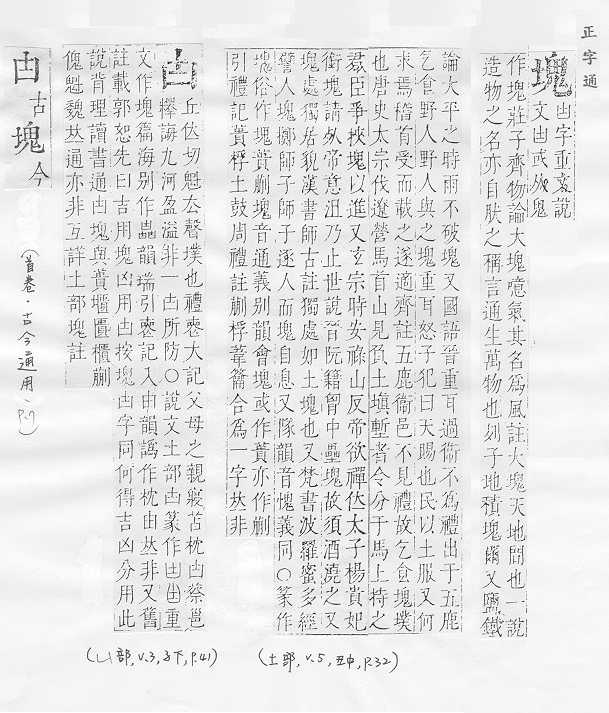 正字通
塊 凷字重文說
文凷或从鬼
作塊莊子齊物論大塊噫氣其名為風註大塊天地間也一說
造物之名亦自肰之稱言通生萬物也列子地積塊爾又鹽鐵
論大平之時雨不破塊又國語晉重耳過衞不為禮出于五鹿
乞食野人野人與之塊重耳怒子犯曰天賜也民以土服又何
求焉稽首受而載之遂適齊註五鹿衞邑不見禮故乞食塊墣
也唐史太宗伐遼營馬首山見負土塡塹者令分于馬上持之
羣臣爭挾塊以進又玄宗時安祿山反帝欲禪太子楊貴妃
銜塊請死帝意沮乃止世說晉阮籍胷中壘塊故須酒澆之又
塊處獨居貌漢書師古註獨處如土塊也又梵書波羅蜜多經
譬人塊擲師子師子逐人而塊自息又隊韻音愧義同○篆作
塊俗作塊蕢蒯塊音通義别韻會塊或作蕢亦作蒯
引禮記蕢桴土鼓周禮註蒯桴葦籥合為一字𠀤非
(土部, v.5, 丑中, P.32)
凷 丘切魁去聲墣也禮喪大記父母之親寢苫枕凷蔡邕
釋誨九河盈溢非一凷所防○說文土部凷篆作凷重
文作塊篇海别作韻端引喪記入由韻譌作枕由𠀤非又舊
註載郭恕先曰吉用塊凶用凷按塊凷字同何得吉凶分用此
說背理讀書通凷塊與蕢壝匱櫃蒯
傀魁魏𠀤通亦非互詳土部塊註
(凵部, v.3, 子下, p.41)
凷古塊今
(首卷·古今通用·P.7)